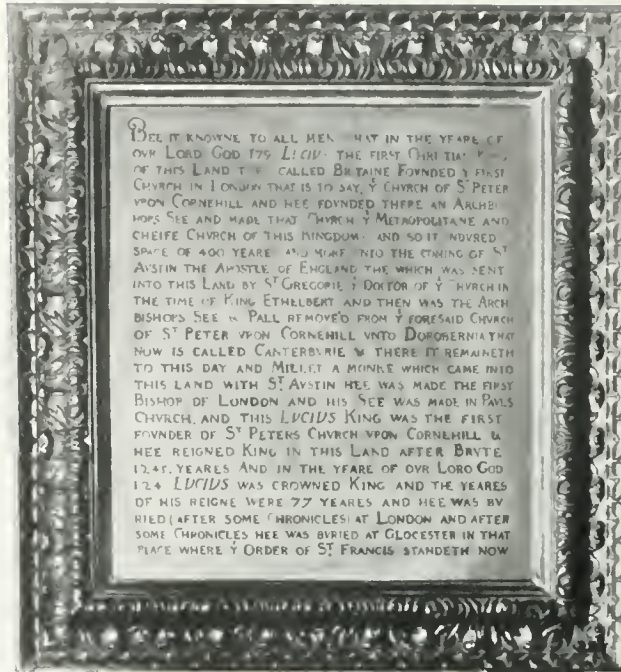 BEE IT KNOWNE TO ALL MEN THAT IN THE YEARE OF
OVR LORD GOD 179 LUCIUS THE FIRST CHRISTIAN KING
OF THIS LAND THEN CALLED BRITAINE FOVNDED Ẏ FIRST
CHVRCH IN LONDON THAT IS TO SAY, Ẏ CHVRCH OF Sᵀ PETER
VPON CORNEHILL AND HEE FOVNDED THERE AN ARCHBI
HOPS SEE AND MADE THAT CHVRCH Ẏ METROPOLITANE AND
CHEIFE CHVRCH OF THIS KINGDOM AND SO IT INDVRED
SPACE OF 400 YEARE AND MORE VNTO THE COMING OF Sᵀ
AVSTIN THE APOSTLE OF ENGLAND THE WHICH WAS SENT
INTO THIS LAND BY Sᵀ GREGORIE Ẏ DOCTOR OF Ẏ CHVRCH IN
THE TIME OF KING ETHELBERT AND THEN WAS THE ARCH
BISHOPS SEE & PALL REMOVE'D FROM Ẏ FORESAID CHVRCH
OF Sᵀ PETER VPON CORNEHILL VNTO DOROBERNIA THAT
NOW IS CALLED CANTERBVRIE & THERE IT REMAINETH
TO THIS DAY AND MILLET A MONKE WHICH CAME INTO
THIS LAND WITH Sᵀ AVSTIN HEE WAS MADE THE FIRST
BISHOP OF LONDON AND HIS SEE WAS MADE IN PAVLS
CHVRCH, AND THIS LUCIUS KING WAS THE FIRST
FOVNDER OF Sᵀ PETERS CHVRCH VPON CORNEHILL &
HEE REIGNED KING IN THIS LAND AFTER BRVTE
1245, YEARES AND IN THE YEARE OF OVR LORD GOD
124 LUCIUS WAS CROWNED KING AND THE YEARES
OF HIS REIGNE WERE 77 YEARES AND HEE WAS BV
RIED (AFTER SOME CHRONICLES) AT LONDON AND AFTER
SOME CHRONICLES HEE WAS BVRIED AT GLOCESTER IN THAT
PLACE WHERE Ẏ ORDER OF Sᵀ FRANCIS STANDETH NOW